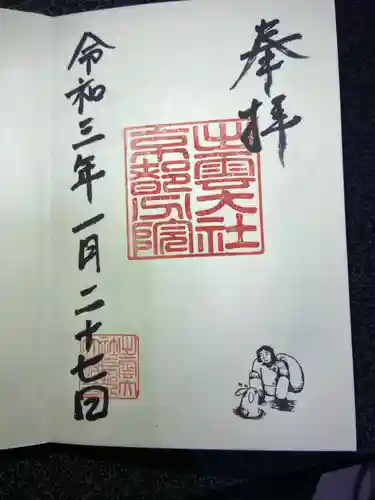 奉拝
出雲大社
京都分院
令和三年一月二十七日